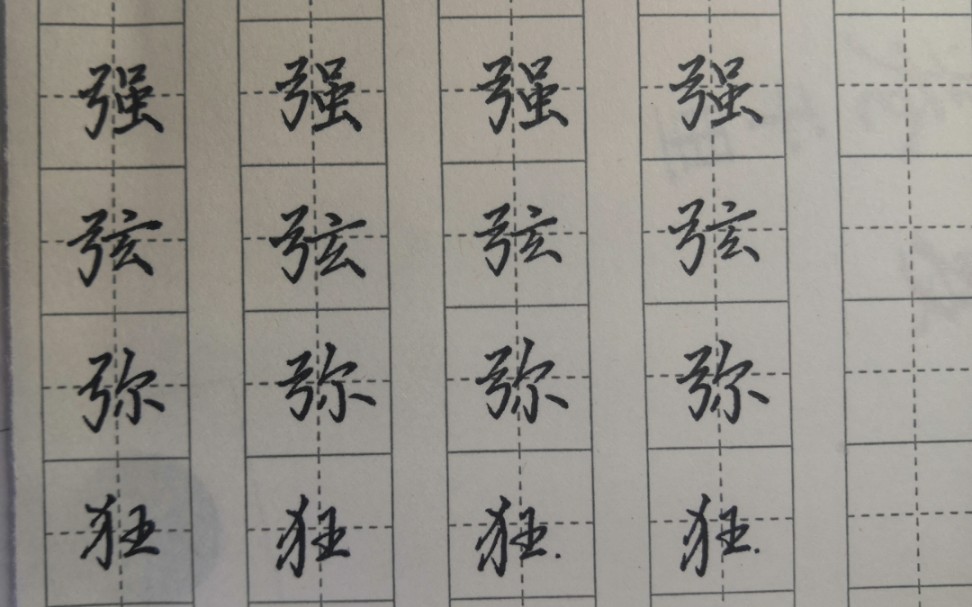 强 强 强 强
弦 弦 弦 弦
弥 弥 弥 弥
狂 狂 狂. 狂.